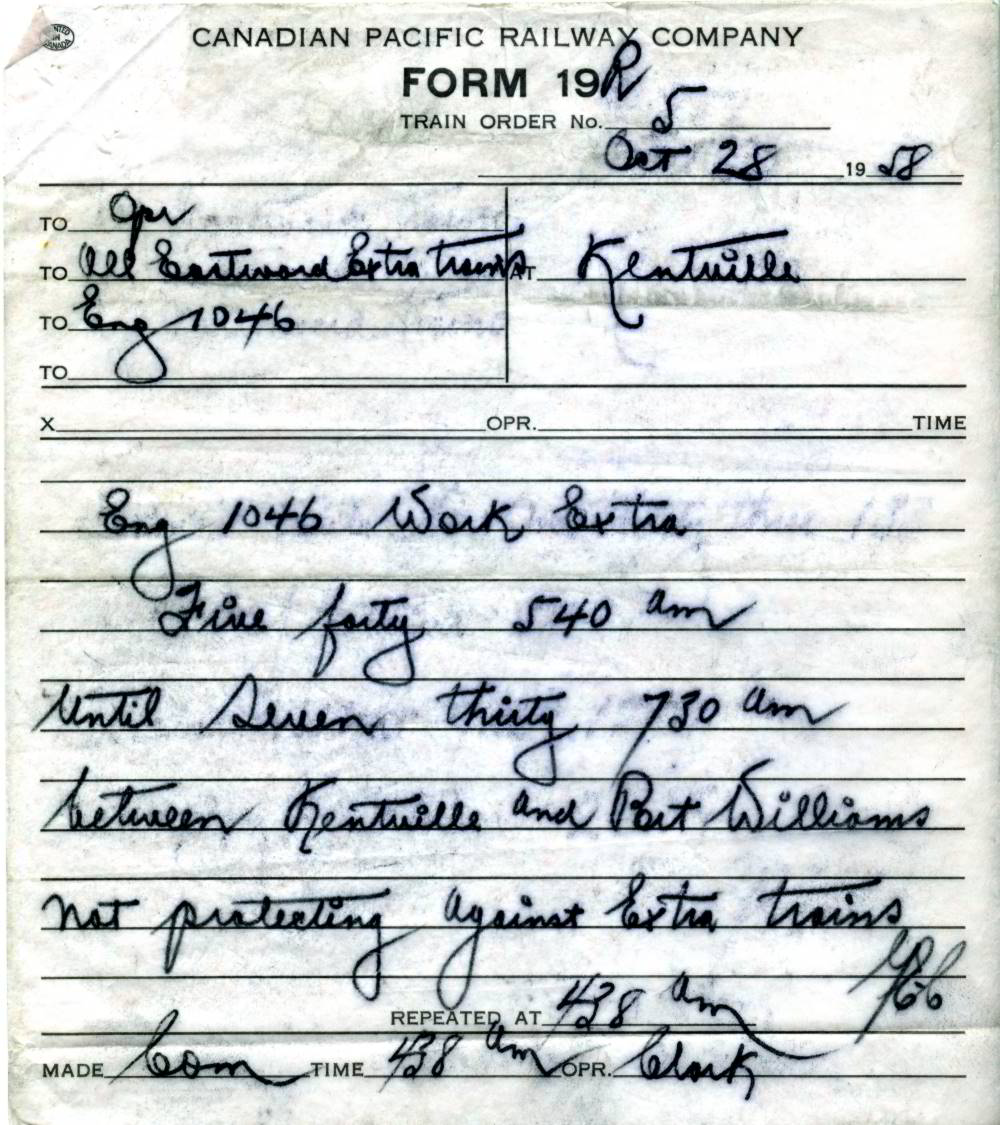 PRINTED IN CANADA
CANADIAN PACIFIC RAILWAY COMPANY
FORM 19R
TRAIN ORDER No. 5
Oct 28 1958
TO Opr
TO All Eastward Extra trains AT Kentville
TO Eng 1046
TO
X OPR. TIME
Eng 1046 Work Extra
Five forty 540 am
Until Seven thirty 730 am
between Kentville and Port Williams
not protecting against Extra trains
REPEATED AT 438 am
MADE Com TIME 438 am OPR. Clark